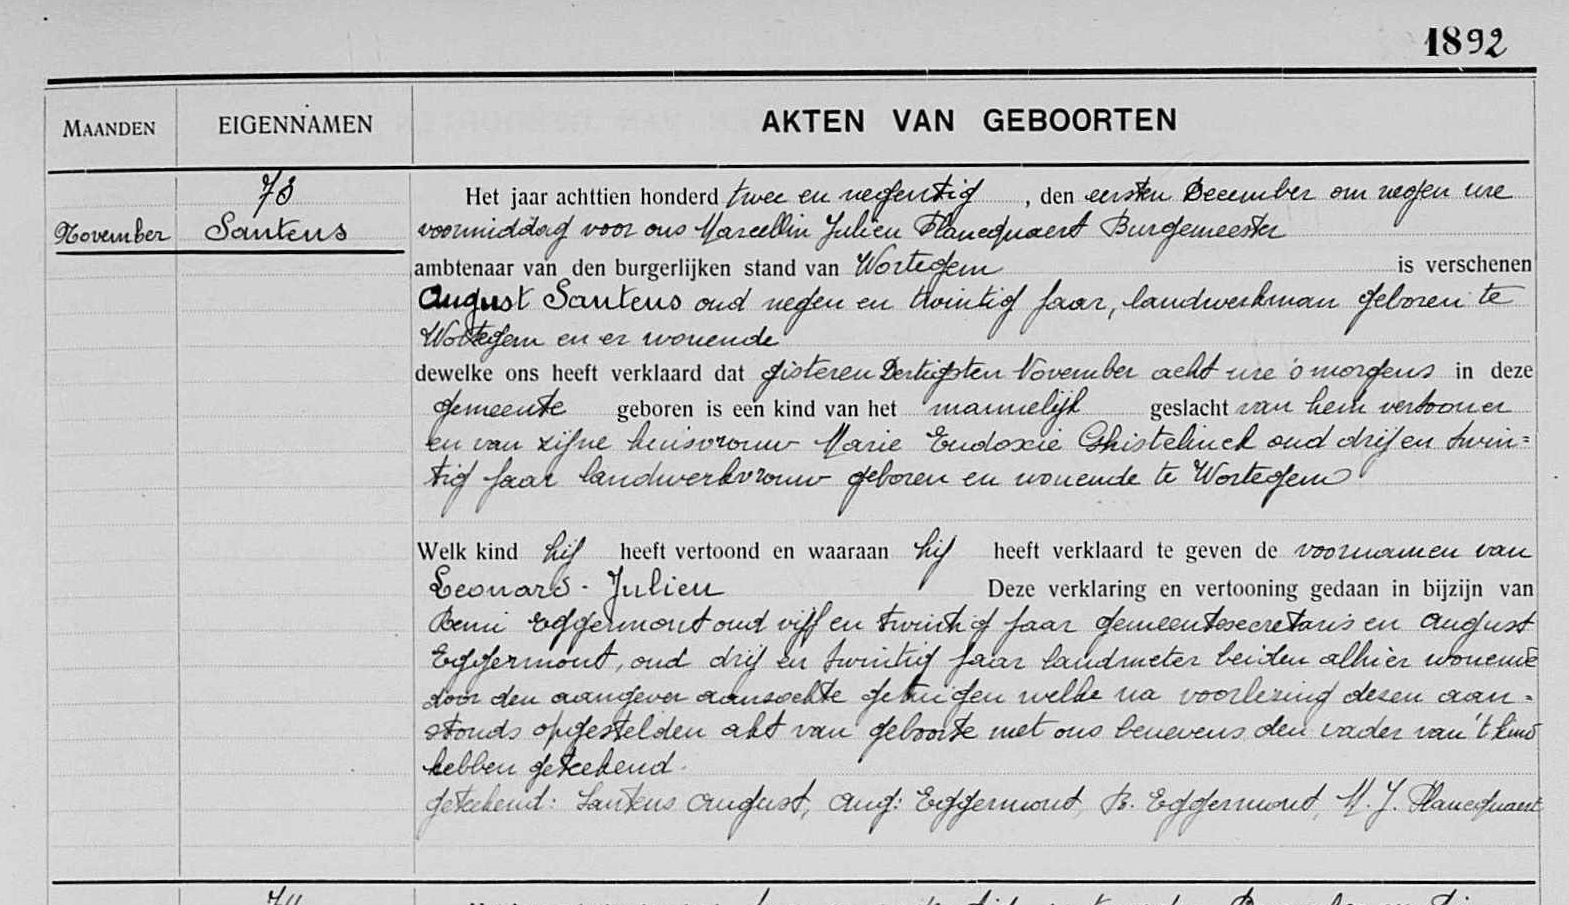 1892
MAANDEN EIGENNAMEN AKTEN VAN GEBOORTEN
73
November Santens
Het jaar achttien honderd twee en negentig, den eersten December om negen ure
voormiddag voor ons Marcellin Julien Plancquaert Burgemeester
ambtenaar van den burgerlijken stand van Wortegem is verschenen
August Santens oud negen en twintig jaar, landwerkman geboren te
Wortegem en er wonende
dewelke ons heeft verklaard dat gisteren Dertigsten November acht ure 's morgens in deze
gemeente geboren is een kind van het mannelijk geslacht van hem vertooner
en van zijne huisvrouw Marie Eudoxie Ghistelinck oud drij en twin=
tig jaar landwerkvrouw geboren en wonende te Wortegem
Welk kind hij heeft vertoond en waaraan hij heeft verklaard te geven de voornamen van
Leonard - Julien Deze verklaring en vertooning gedaan in bijzijn van
Remi Eggermont oud vijf en twintig jaar gemeentesecretaris en August
Eggermont, oud drij en twintig jaar landmeter beiden alhier wonende
door den aangever aanzochte getuigen welke na voorlezing dezen aan=
stonds opgestelden akt van geboorte met ons benevens den vader van 't kind
hebben geteekend.
geteekend: Santens August, Aug: Eggermont, R. Eggermont, M. J. Plancquaert
74